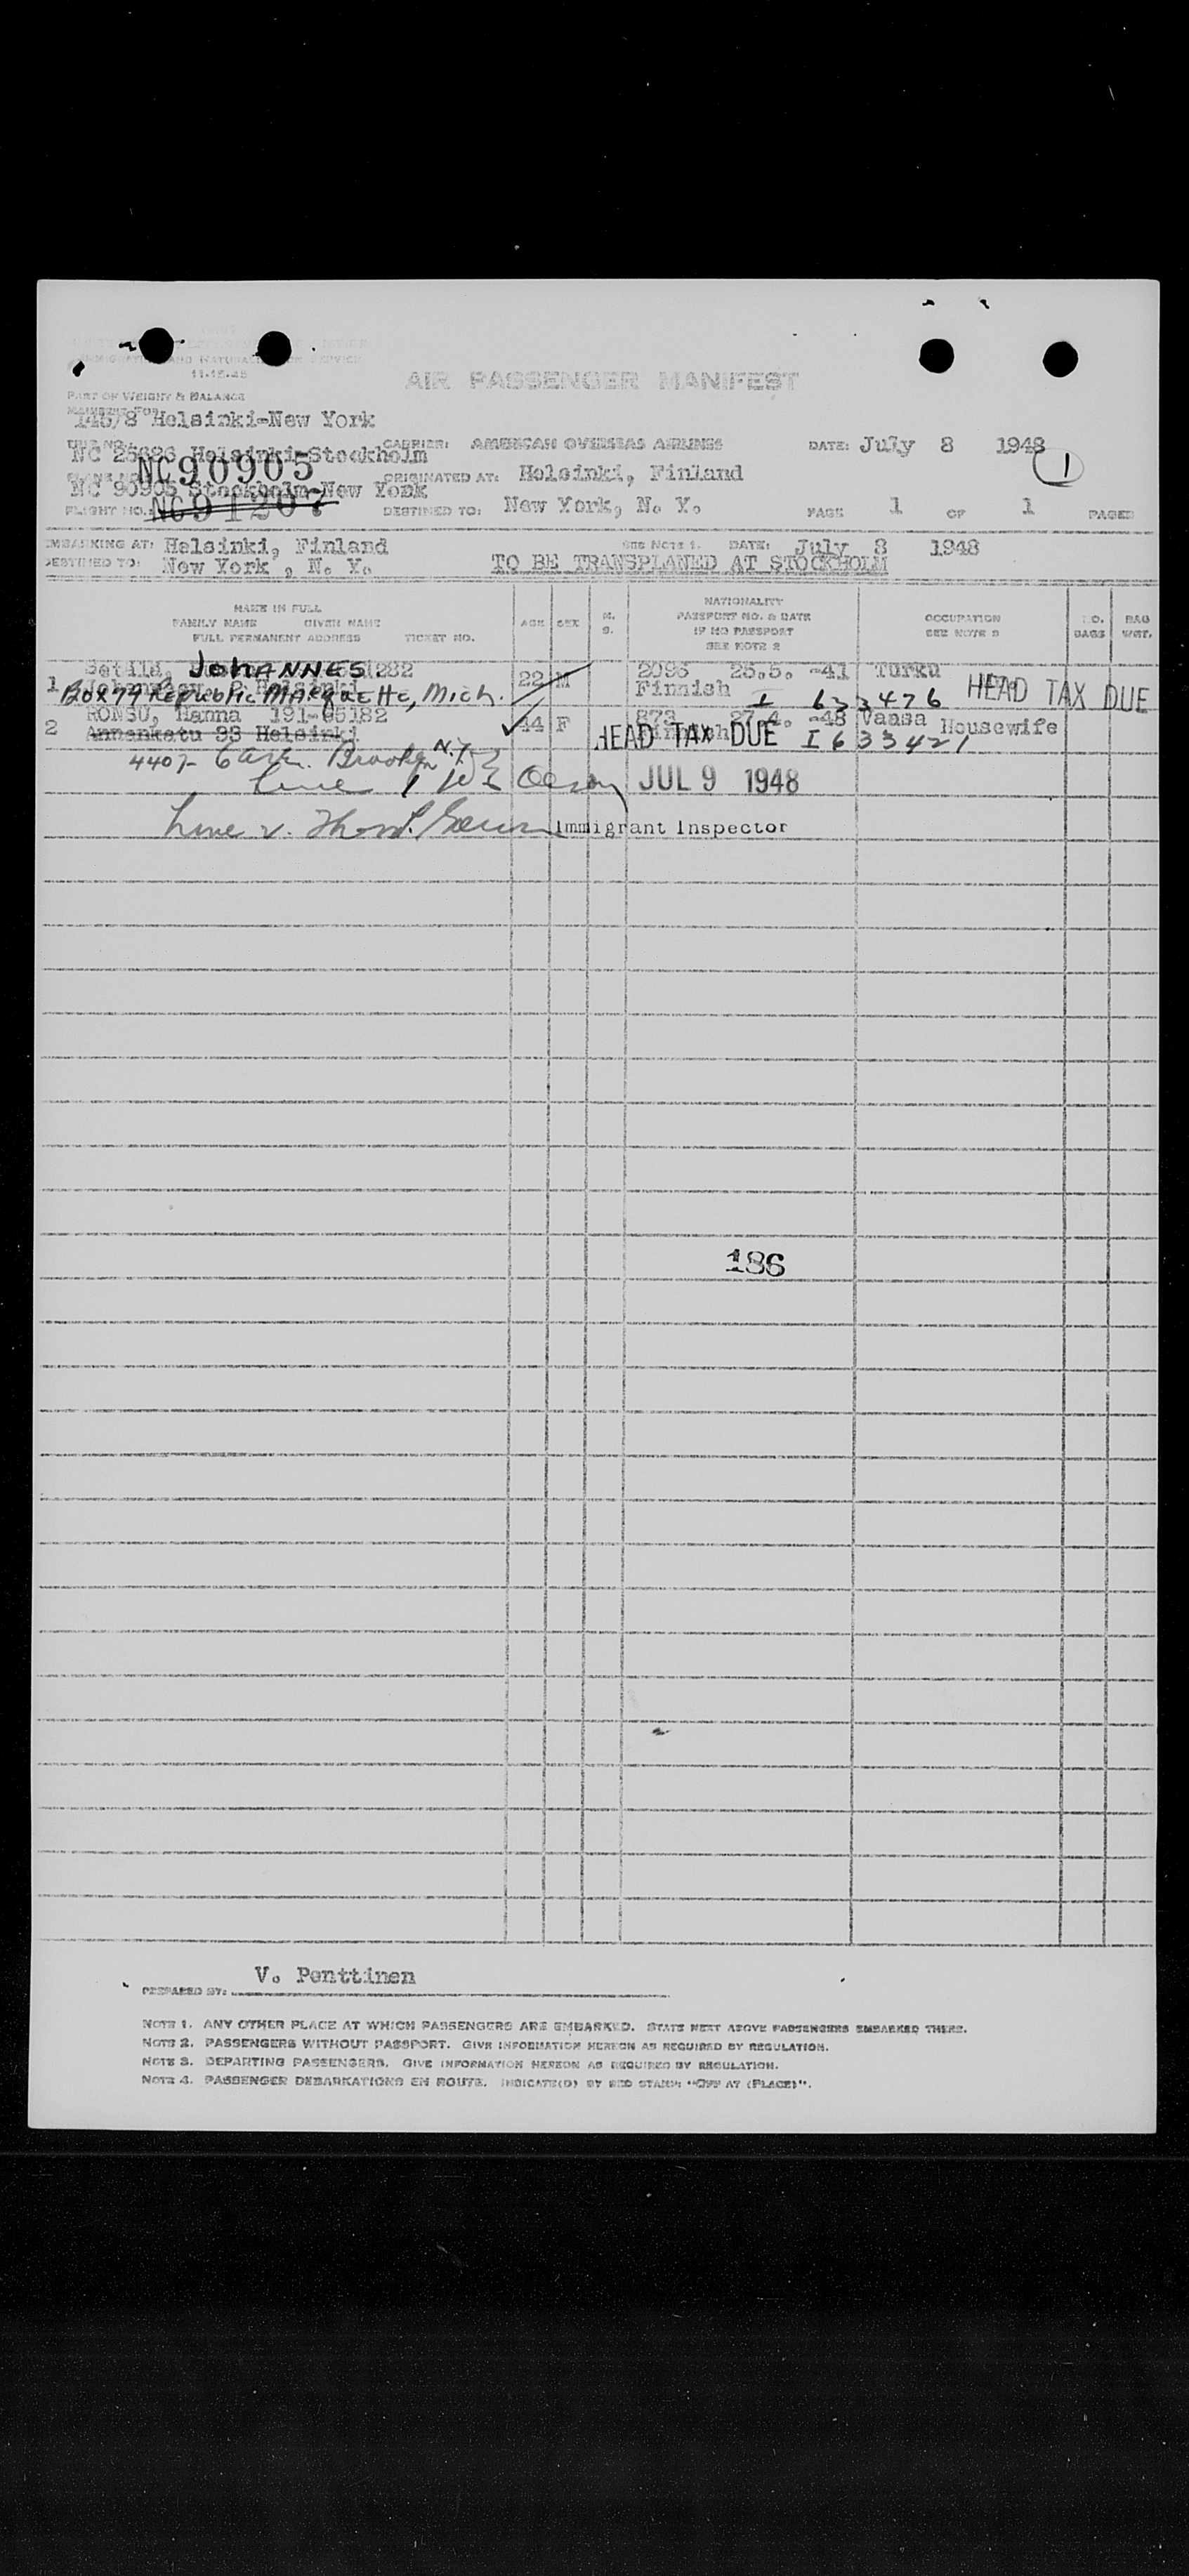 IMMIGRATION AND NATURALIZATION SERVICE
11-15-45
AIR PASSENGER MANIFEST
PART OF WEIGHT & BALANCE
MANIFEST FOR
145/8 Helsinki-New York
NC 25626 Helsinki-Stockholm
CARRIER: AMERICAN OVERSEAS AIRLINES
DATE: July 8 1948
1
NC90905
ORIGINATED AT: Helsinki, Finland
NC 90905 Stockholm-New York
FLIGHT NO. NC91207
DESTINED TO: New York, N. Y.
PAGE 1 OF 1 PAGES
EMBARKING AT: Helsinki, Finland
SEE NOTE 1. DATE: July 8 1948
DESTINED TO: New York , N. Y.
TO BE TRANSPLANED AT STOCKHOLM
NAME IN FULL
FAMILY NAME GIVEN NAME
FULL PERMANENT ADDRESS TICKET NO.
AGE
SEX
M.
S.
NATIONALITY
PASSPORT NO. & DATE
IF NO PASSPORT
SEE NOTE 2
OCCUPATION
SEE NOTE 3
NO.
BAGS
BAG
WGT.
Setälä, JOHANNES
1
22 M
2096 25.5. -41 Turku
Finnish I 633476 HEAD TAX DUE
Box 79 Republic Marquette, Mich.
2 RONSU, Hanna 191-65182
44 F
873 27.4. -48 Vaasa
Housewife
Annankatu 93 Helsinki
HEAD TAX DUE I 633421
4407- 6 Ave. Brooklyn N.Y.
Line 1 Olson JUL 9 1948
Line 2. Immigrant Inspector
186
V. Penttinen
PREPARED BY:
NOTE 1. ANY OTHER PLACE AT WHICH PASSENGERS ARE EMBARKED. STATE NEXT ABOVE PASSENGERS EMBARKED THERE.
NOTE 2. PASSENGERS WITHOUT PASSPORT. GIVE INFORMATION HEREON AS REQUIRED BY REGULATION.
NOTE 3. DEPARTING PASSENGERS. GIVE INFORMATION HEREON AS REQUIRED BY REGULATION.
NOTE 4. PASSENGER DEBARKATIONS EN ROUTE. INDICATE(D) BY RED STAMP "OFF AT (PLACE)".